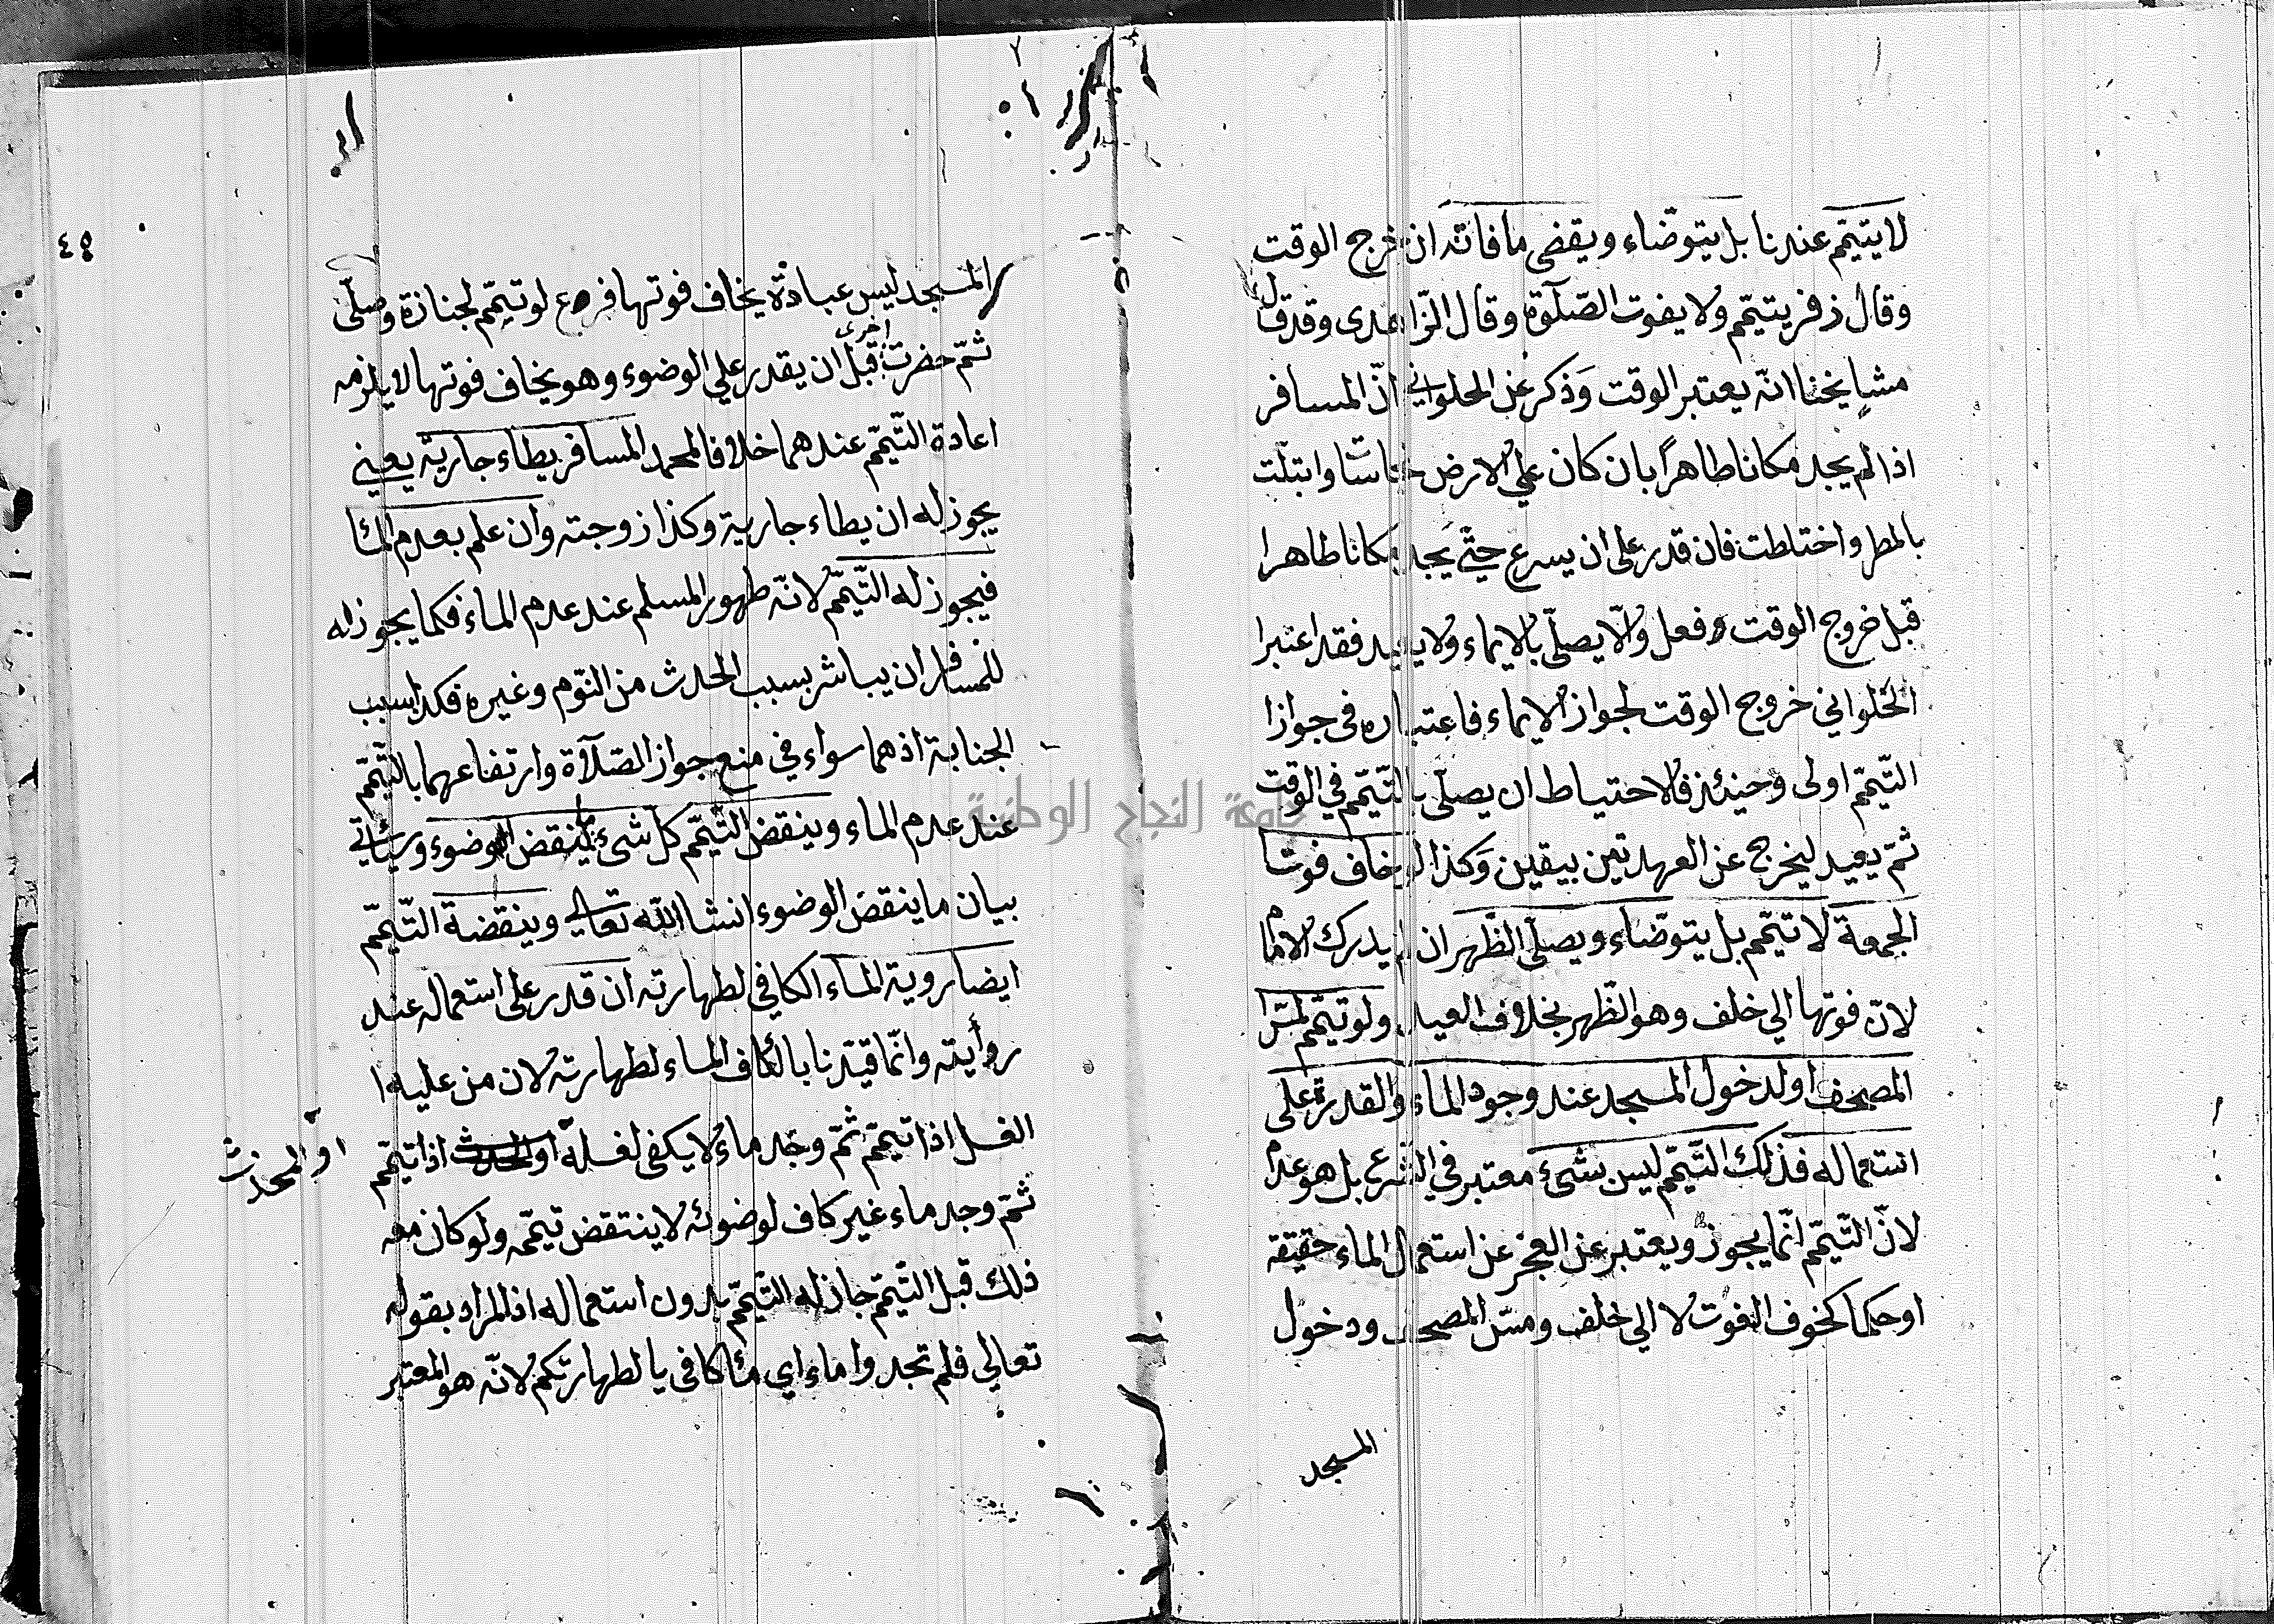 لا يتيمّم عندنا بل يتوضّاء ويقضى ما فاتته ان خرج الوقت
وقال زفر يتيمّم ولا يفوت الصّلوة وقال الزّاهدى وقد قال
مشايخنا انّه يعتبر الوقت وذكر عن الحلوانى انّ المسافر
اذا لم يجد مكانا طاهرًا بان كان على الارض نجاسًا وابتلّت
بالمطر واختلطت فان قدر على ان يسرع حتّى يجد مكانا طاهرا
قبل خروج الوقت فعل والّا يصلّى بالايماء ولا يعيد فقد اعتبرا
الحلوانى خروج الوقت لجواز الايماء فاعتباره فى جواز
التّيمّم اولى وحينئذ فالاحتياط ان يصلّى بالتّيمّم فى الوقت
ثمّ يعيد ليخرج عن العهدتين بيقين وكذا لو خاف فوت
الجمعة لا تيمّم بل يتوضّاء ويصلّى الظّهر ان لم يدرك الامام
لانّ فوتها الى خلف وهو الظّهر بخلاف العيد ولو تيمّم لمسّ
المصحف او لدخول المسجد عند وجود الماء والقدرة على
استعماله فذلك التّيمّم ليس بشىء معتبر فى الشرع بل هو عدم
لانّ التّيمّم انّما يجوز ويعتبر عن العجز عن استعمال الماء حقيقة
او حكما كخوف الفوت لا الى خلف ومسّ المصحف ودخول
المسجد
٤٥
المسجد ليس عبادة يخاف فوتها فرع لو تيمّم لجنازة وصلّى
ثمّ حضرت اخرى قبل ان يقدر على الوضوء وهو يخاف فوتها لا يلزمه
اعادة التّيمّم عندهما خلافا لمحمد المسافر يطاء جاريته يعنى
يجوز له ان يطاء جارية وكذا زوجته وان علم بعدم الماء
فيجوز له التّيمّم لانّه طهور المسلم عند عدم الماء فكما يجوز له
للمسافر ان يباشر بسبب الحدث من النّوم وغيره فكذا بسبب
الجنابة اذ هما سواء فى منع جواز الصّلاة وارتفاعهما بالتّيمّم
عند عدم الماء وينقض التّيمّم كل شىء ينقض الوضوء وسيأتى
بيان ما ينقض الوضوء انشا اللّه تعالى وينقضة التّيمّم
ايضا روية الماء الكافى لطهارته ان قدر على استعماله عند
روأيته وانّما قيّدنا بالكاف الماء لطهارته لان من عليه ا
الغسل اذا تيمّم ثمّ وجد ماء لا يكفى لغسله اذا تيمّم
او المحدث
ثمّ وجد ماء غير كاف لوضوئه لا ينتقض تيمّمه ولو كان معه
ذلك قبل التّيمّم جاز له التّيمّم بدون استعماله اذ المراد بقوله
تعالى فلم تجدوا ماء اى مأ كافى يا لطهارتكم لانّه هو المعتبر
جامعة النجاح الوطنية